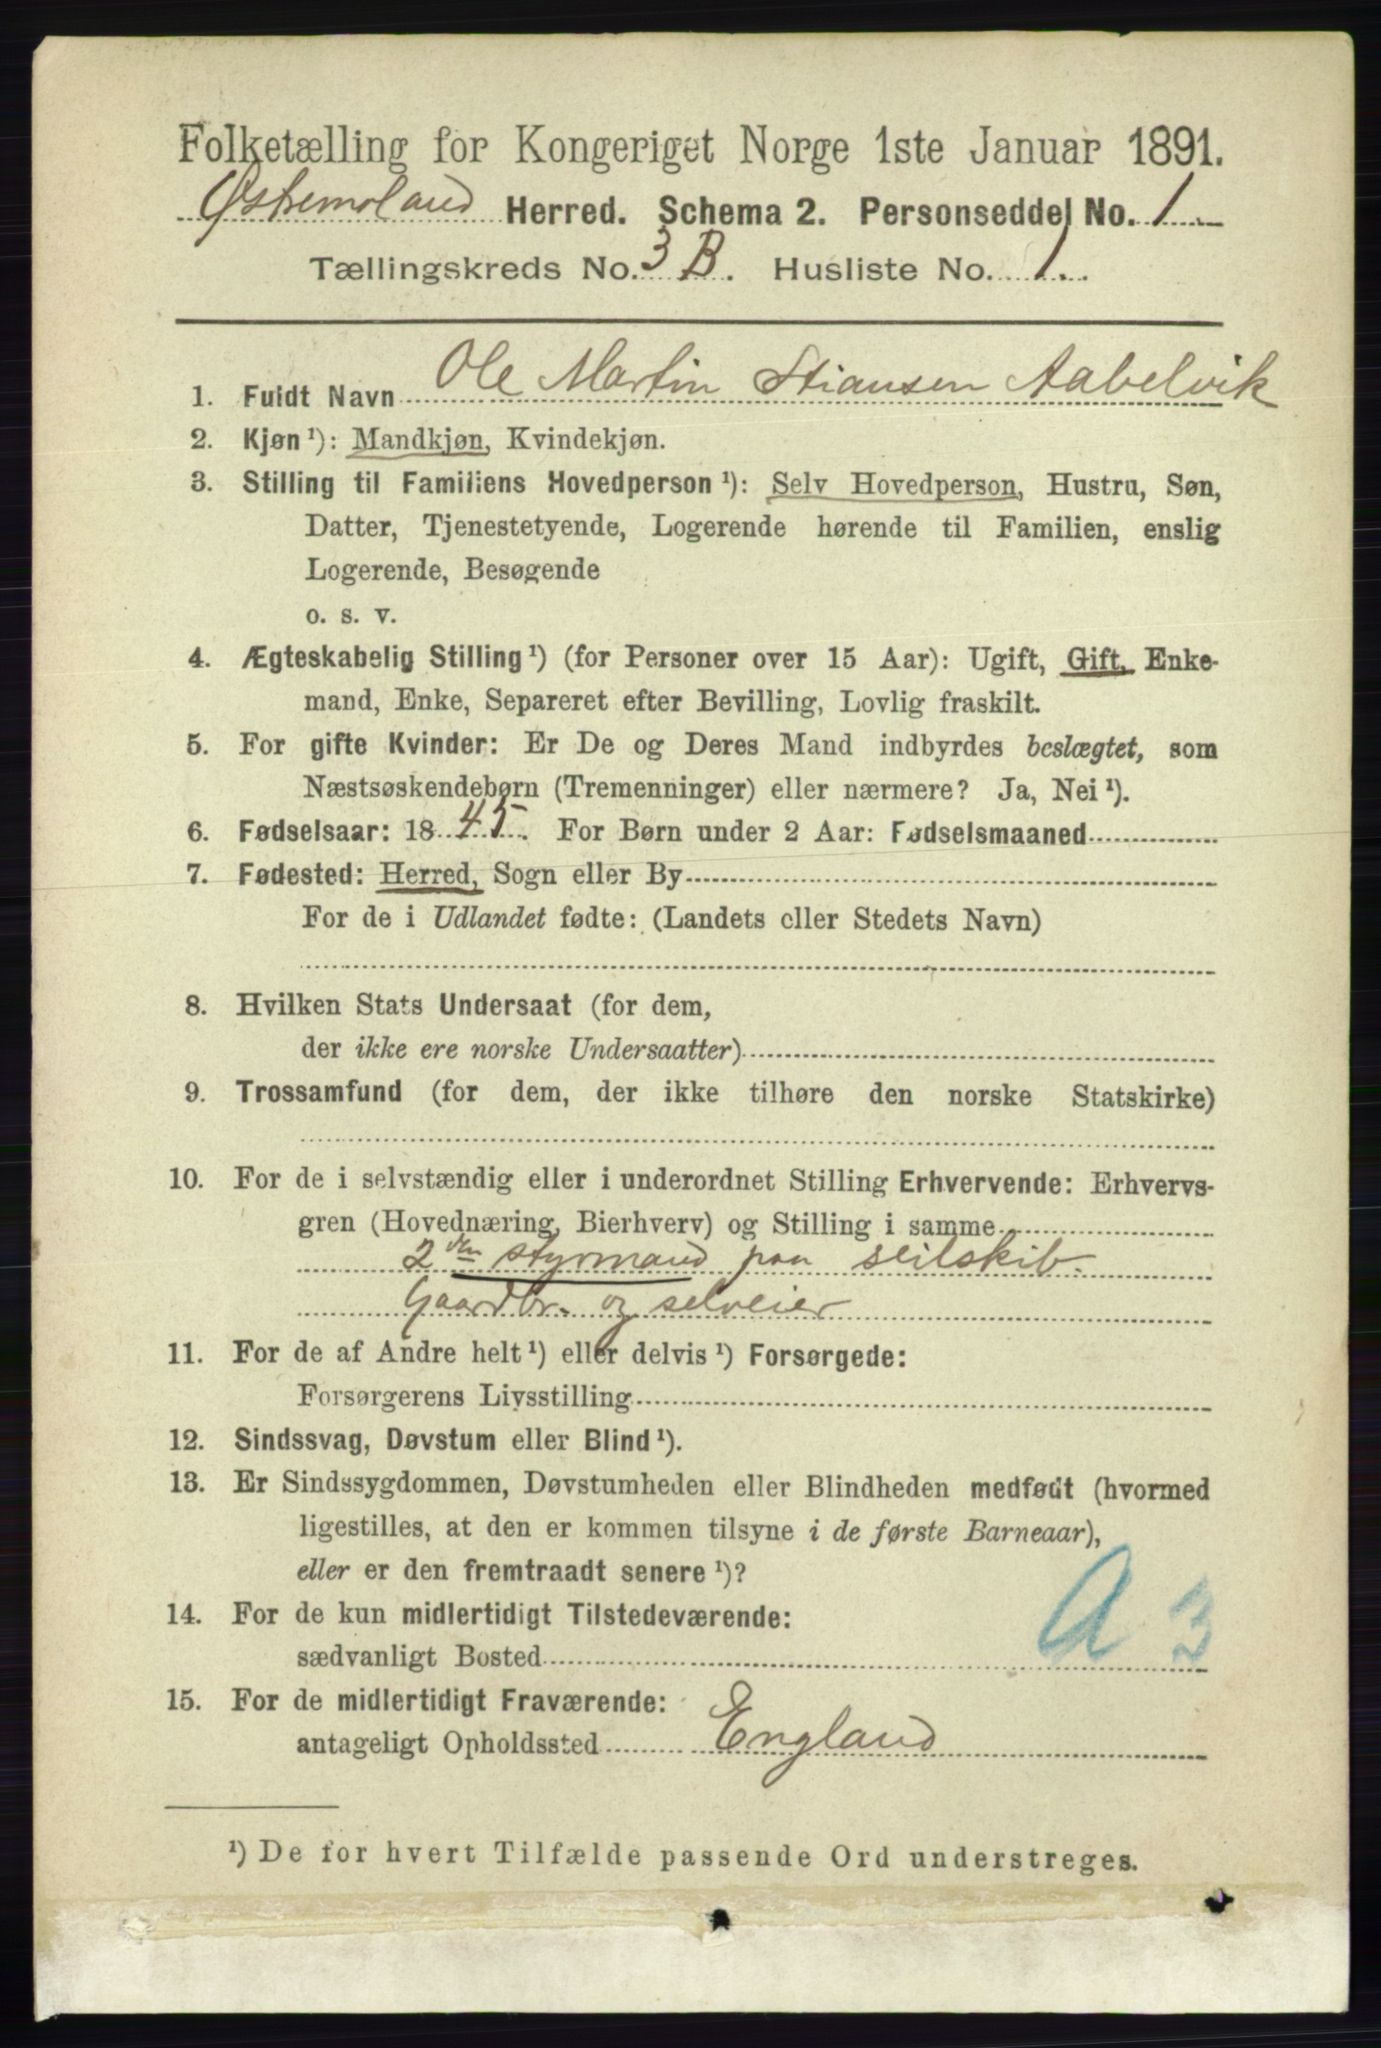 Folketælling for Kongeriget Norge 1ste Januar 1891.
Østremoland Herred. Schema 2. Personseddel No. 1.
Tællingskreds No. 3 B. Husliste No. 1.
1. Fuldt Navn Ole Martin Stiansen Aabelvik
2. Kjøn ¹): Mandkjøn, Kvindekjøn.
3. Stilling til Familiens Hovedperson ¹): Selv Hovedperson, Hustru, Søn,
Datter, Tjenestetyende, Logerende hørende til Familien, enslig
Logerende, Besøgende
o. s. v.
4. Ægteskabelig Stilling ¹) (for Personer over 15 Aar): Ugift, Gift, Enke-
mand, Enke, Separeret efter Bevilling, Lovlig fraskilt.
5. For gifte Kvinder: Er De og Deres Mand indbyrdes beslægtet, som
Næstsøskendebørn (Tremenninger) eller nærmere? Ja, Nei ¹).
6. Fødselsaar: 1845. For Børn under 2 Aar: Fødselsmaaned
7. Fødested: Herred, Sogn eller By
For de i Udlandet fødte: (Landets eller Stedets Navn)
8. Hvilken Stats Undersaat (for dem,
der ikke ere norske Undersaatter)
9. Trossamfund (for dem, der ikke tilhøre den norske Statskirke)
10. For de i selvstændig eller i underordnet Stilling Erhvervende: Erhvervs-
gren (Hovednæring, Bierhverv) og Stilling i samme
2den styrmand paa seilskib.
Gaardbr. og selveier
11. For de af Andre helt ¹) eller delvis ¹) Forsørgede:
Forsørgerens Livsstilling
12. Sindssvag, Døvstum eller Blind ¹).
13. Er Sindssygdommen, Døvstumheden eller Blindheden medfødt (hvormed
ligestilles, at den er kommen tilsyne i de første Barneaar),
eller er den fremtraadt senere ¹)?
14. For de kun midlertidigt Tilstedeværende:
sædvanligt Bosted
A 3
15. For de midlertidigt Fraværende:
antageligt Opholdssted England
¹) De for hvert Tilfælde passende Ord understreges.